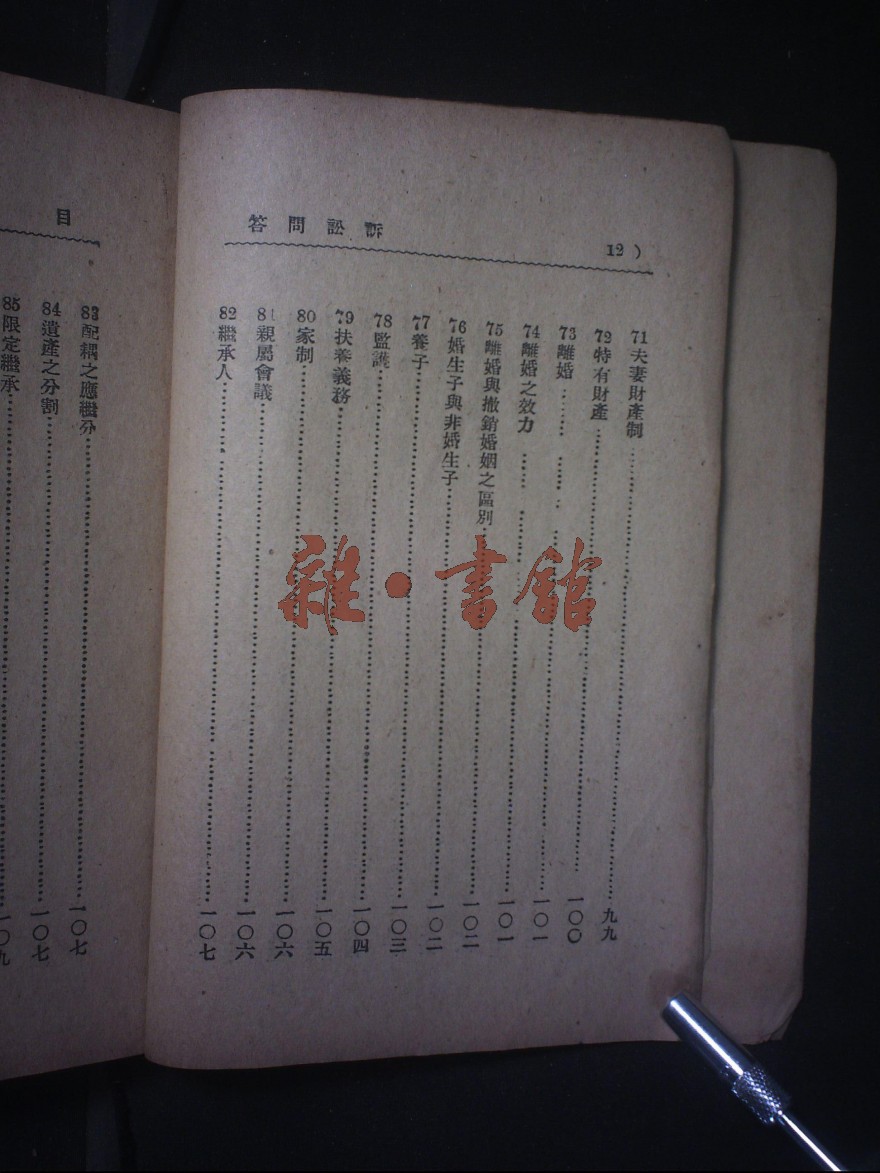 12）
訴訟問答
71夫妻財產制……九九
72特有財產……一〇〇
73離婚……一〇一
74離婚之效力……一〇一
75離婚與撤銷婚姻之區別……一〇二
76婚生子與非婚生子……一〇二
77養子……一〇三
78監護……一〇四
79扶養義務……一〇五
80家制……一〇六
81親屬會議……一〇六
82繼承人……一〇七
目
83配耦之應繼分……一〇七
84遺產之分割……一〇七
85限定繼承……一〇九
雜·書館